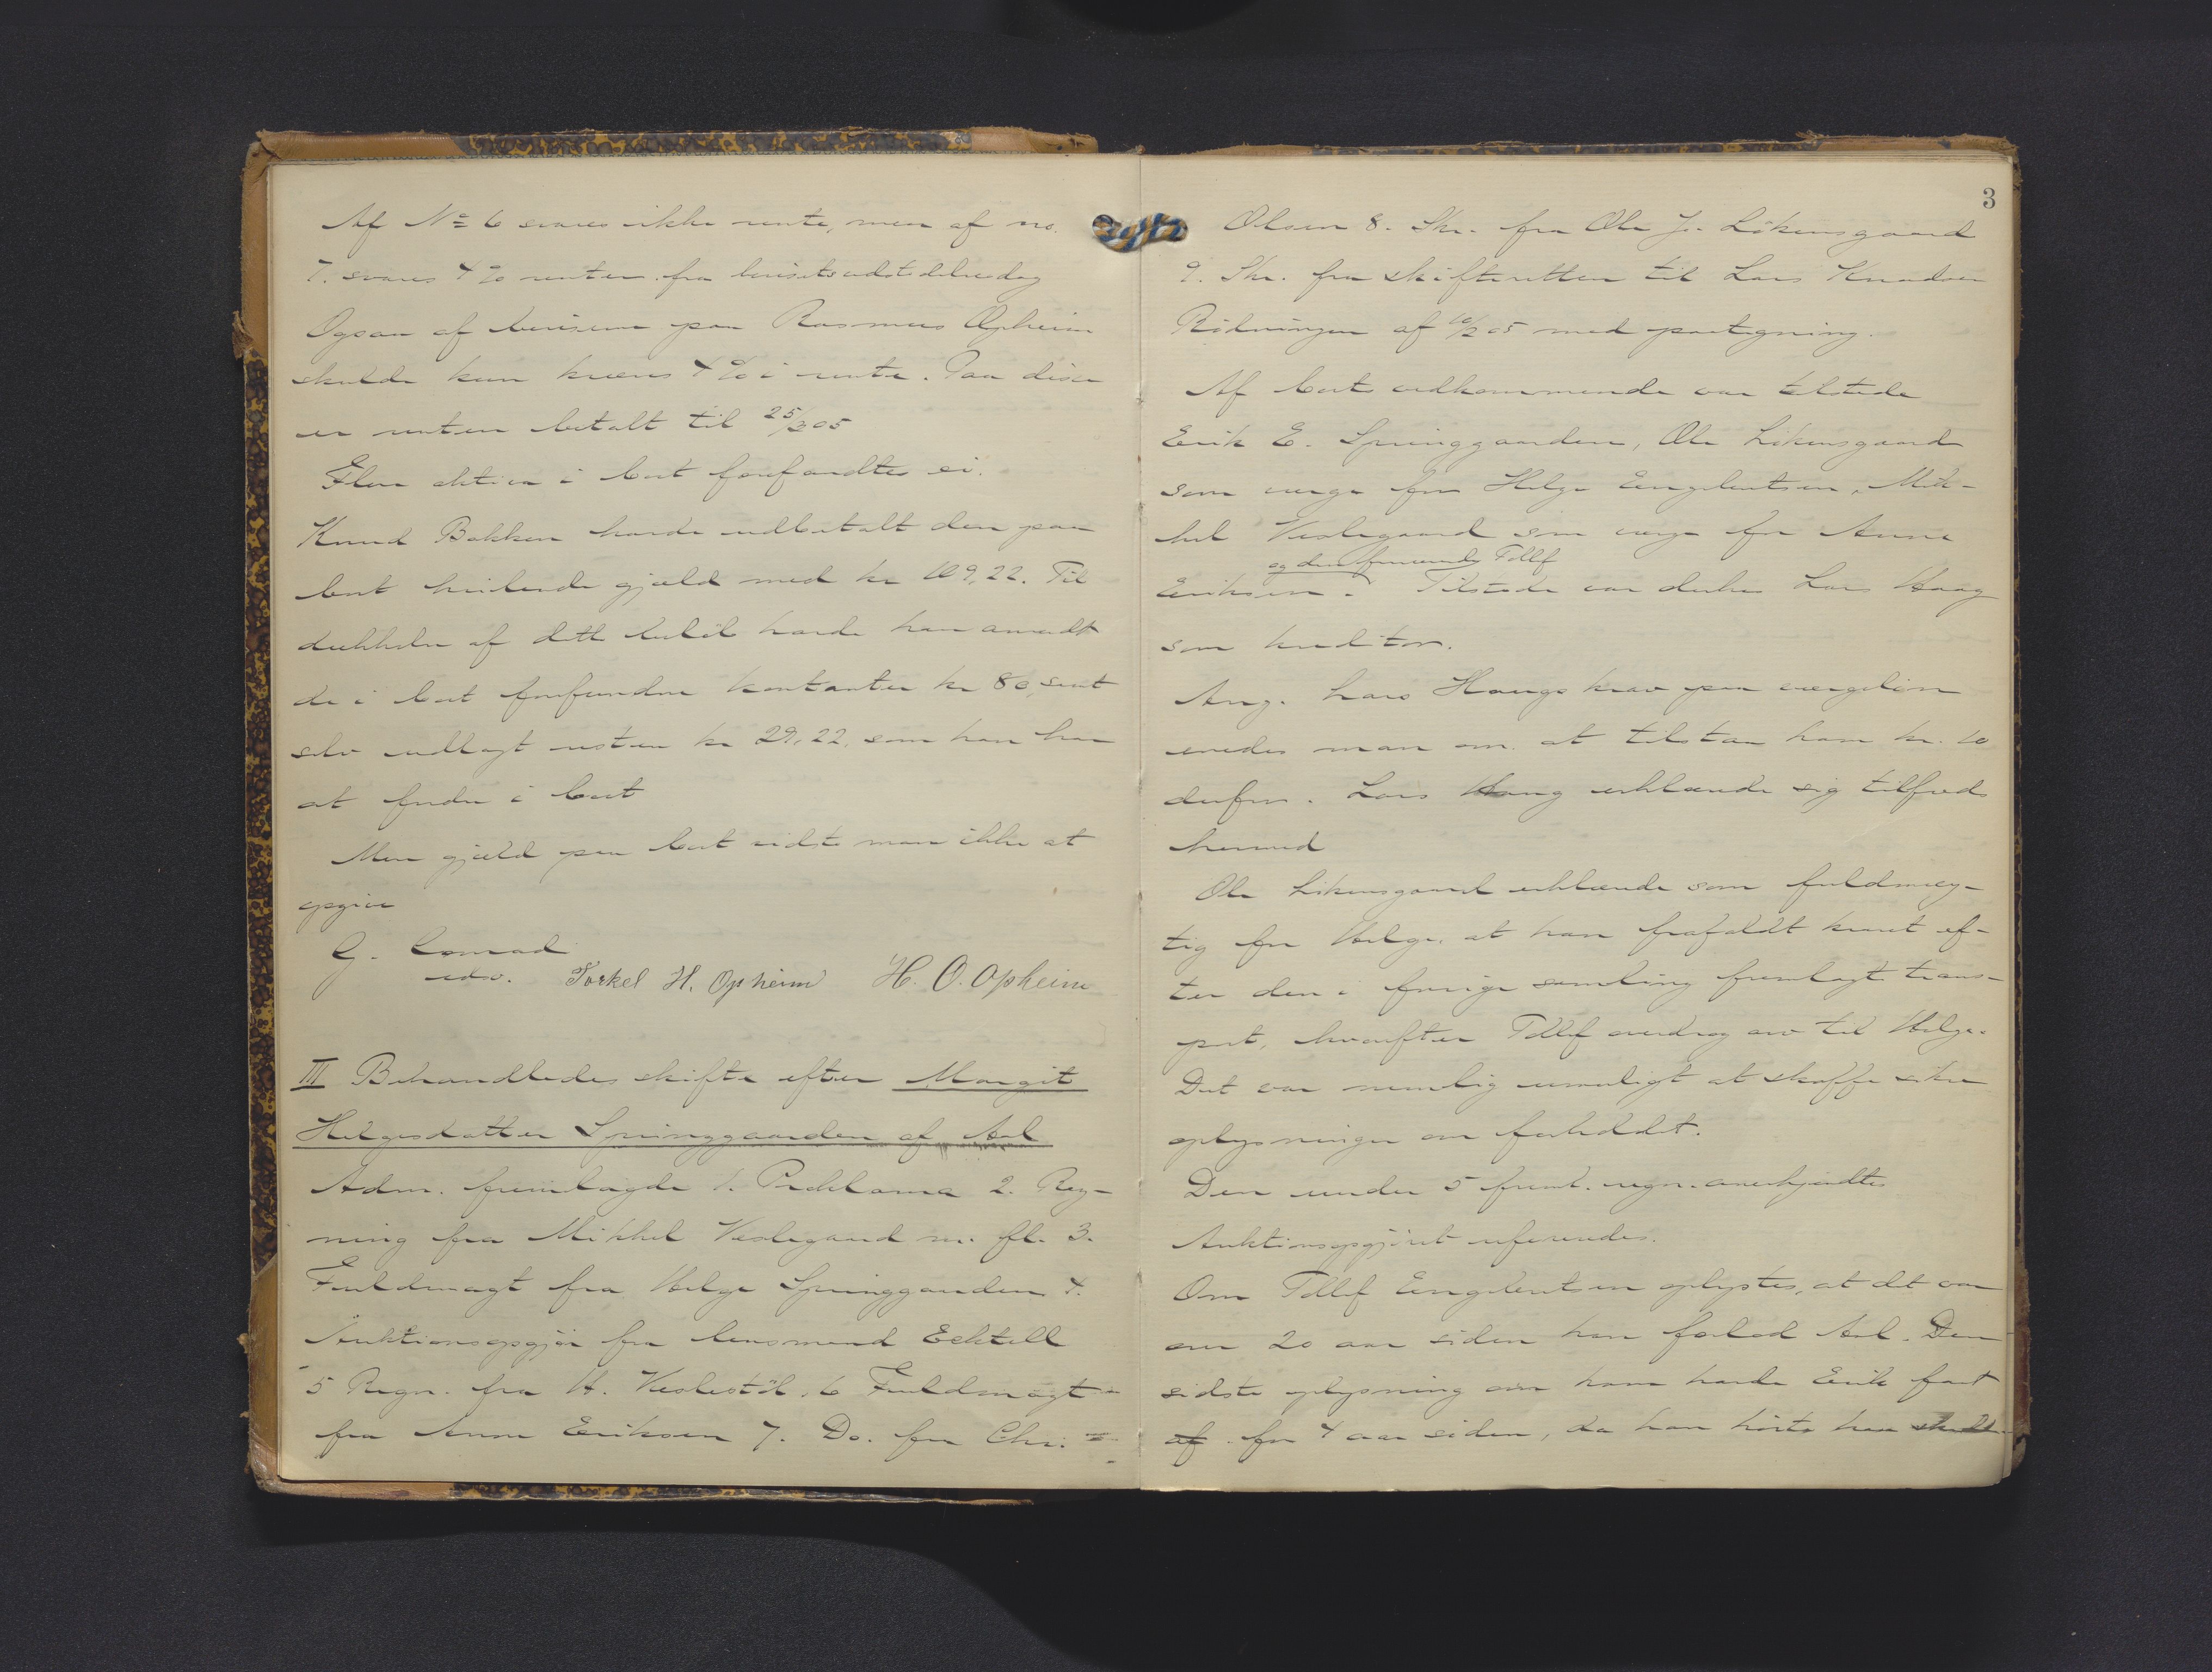 Af No 6 svares ikke rente, men af no.
7. svares 4 % renter fra bevisets udstedelsesdag
Ogsaa af beviserne paa Rasmus Opheim
skulde kun kræves 4 % i rente. Paa disse
er renten betalt til 25/2 05
Flere aktiva i boet forefandtes ei.
Knud Bakken havde udbetalt den paa
boet hvilende gjæld med kr 109,22. Til
dækkelse af dette beløb havde han anvendt
de i boet forefundne kontanter kr 80, samt
selv udlagt resten kr 29,22, som han har
at fordre i boet
Mere gjæld paa boet vidste man ikke at
opgive
G. Conrad
edv. Torkel H. Opheim H. O. Opheim
III Behandledes skifte efter Margit
Helgesdatter Springgaarden af Aal
Adm. fremlagde 1. Proklama 2. Reg-
ning fra Mikkel Veslegaard m. fl. 3.
Fuldmagt fra Helge Springgaarden 4.
Auktionsopgjør fra lensmand Ecktell
5 Regn. fra H. Veslestøl. 6 Fuldmagt
fra Anne Eriksen 7. Do. fra Chr.
3
Olsen 8. Skr. fra Ole J. Løkensgaard
9. Skr. fra skifteretten til Lars Knudsen
Rødningen af 10/2 05 med paategning.
Af boets vedkommende var tilstede
Erik E. Springgaarden, Ole Løkensgaard
som verge for Helge Engebretsen, Mik-
kel Veslegaard som verge for Anne
og den fraværende Tollef
Eriksen. Tilstede var derhos Lars Haug
som kreditor.
Ang. Lars Haugs krav paa vergeløn
enedes man om at tilstaa ham kr. 10
derfor. Lars Haug erklærede sig tilfreds
hermed
Ole Løkensgaard erklærede som fuldmæg-
tig for Helge, at han frafaldt kravet ef-
ter den i forrige samling fremlagt trans-
port, hvorefter Tollef overdrog arv til Helge.
Det var nemlig umuligt at skaffe sikre
oplysninger om forholdet.
Den under 5 freml. regn. anerkjendtes
Auktionsopgjøret refereredes.
Om Tollef Engebretsen oplystes, at det var
over 20 aar siden han forlod Aal. Den
sidste oplysning om ham havde Erik faat
af for 4 aar siden, da han hørte han skulde